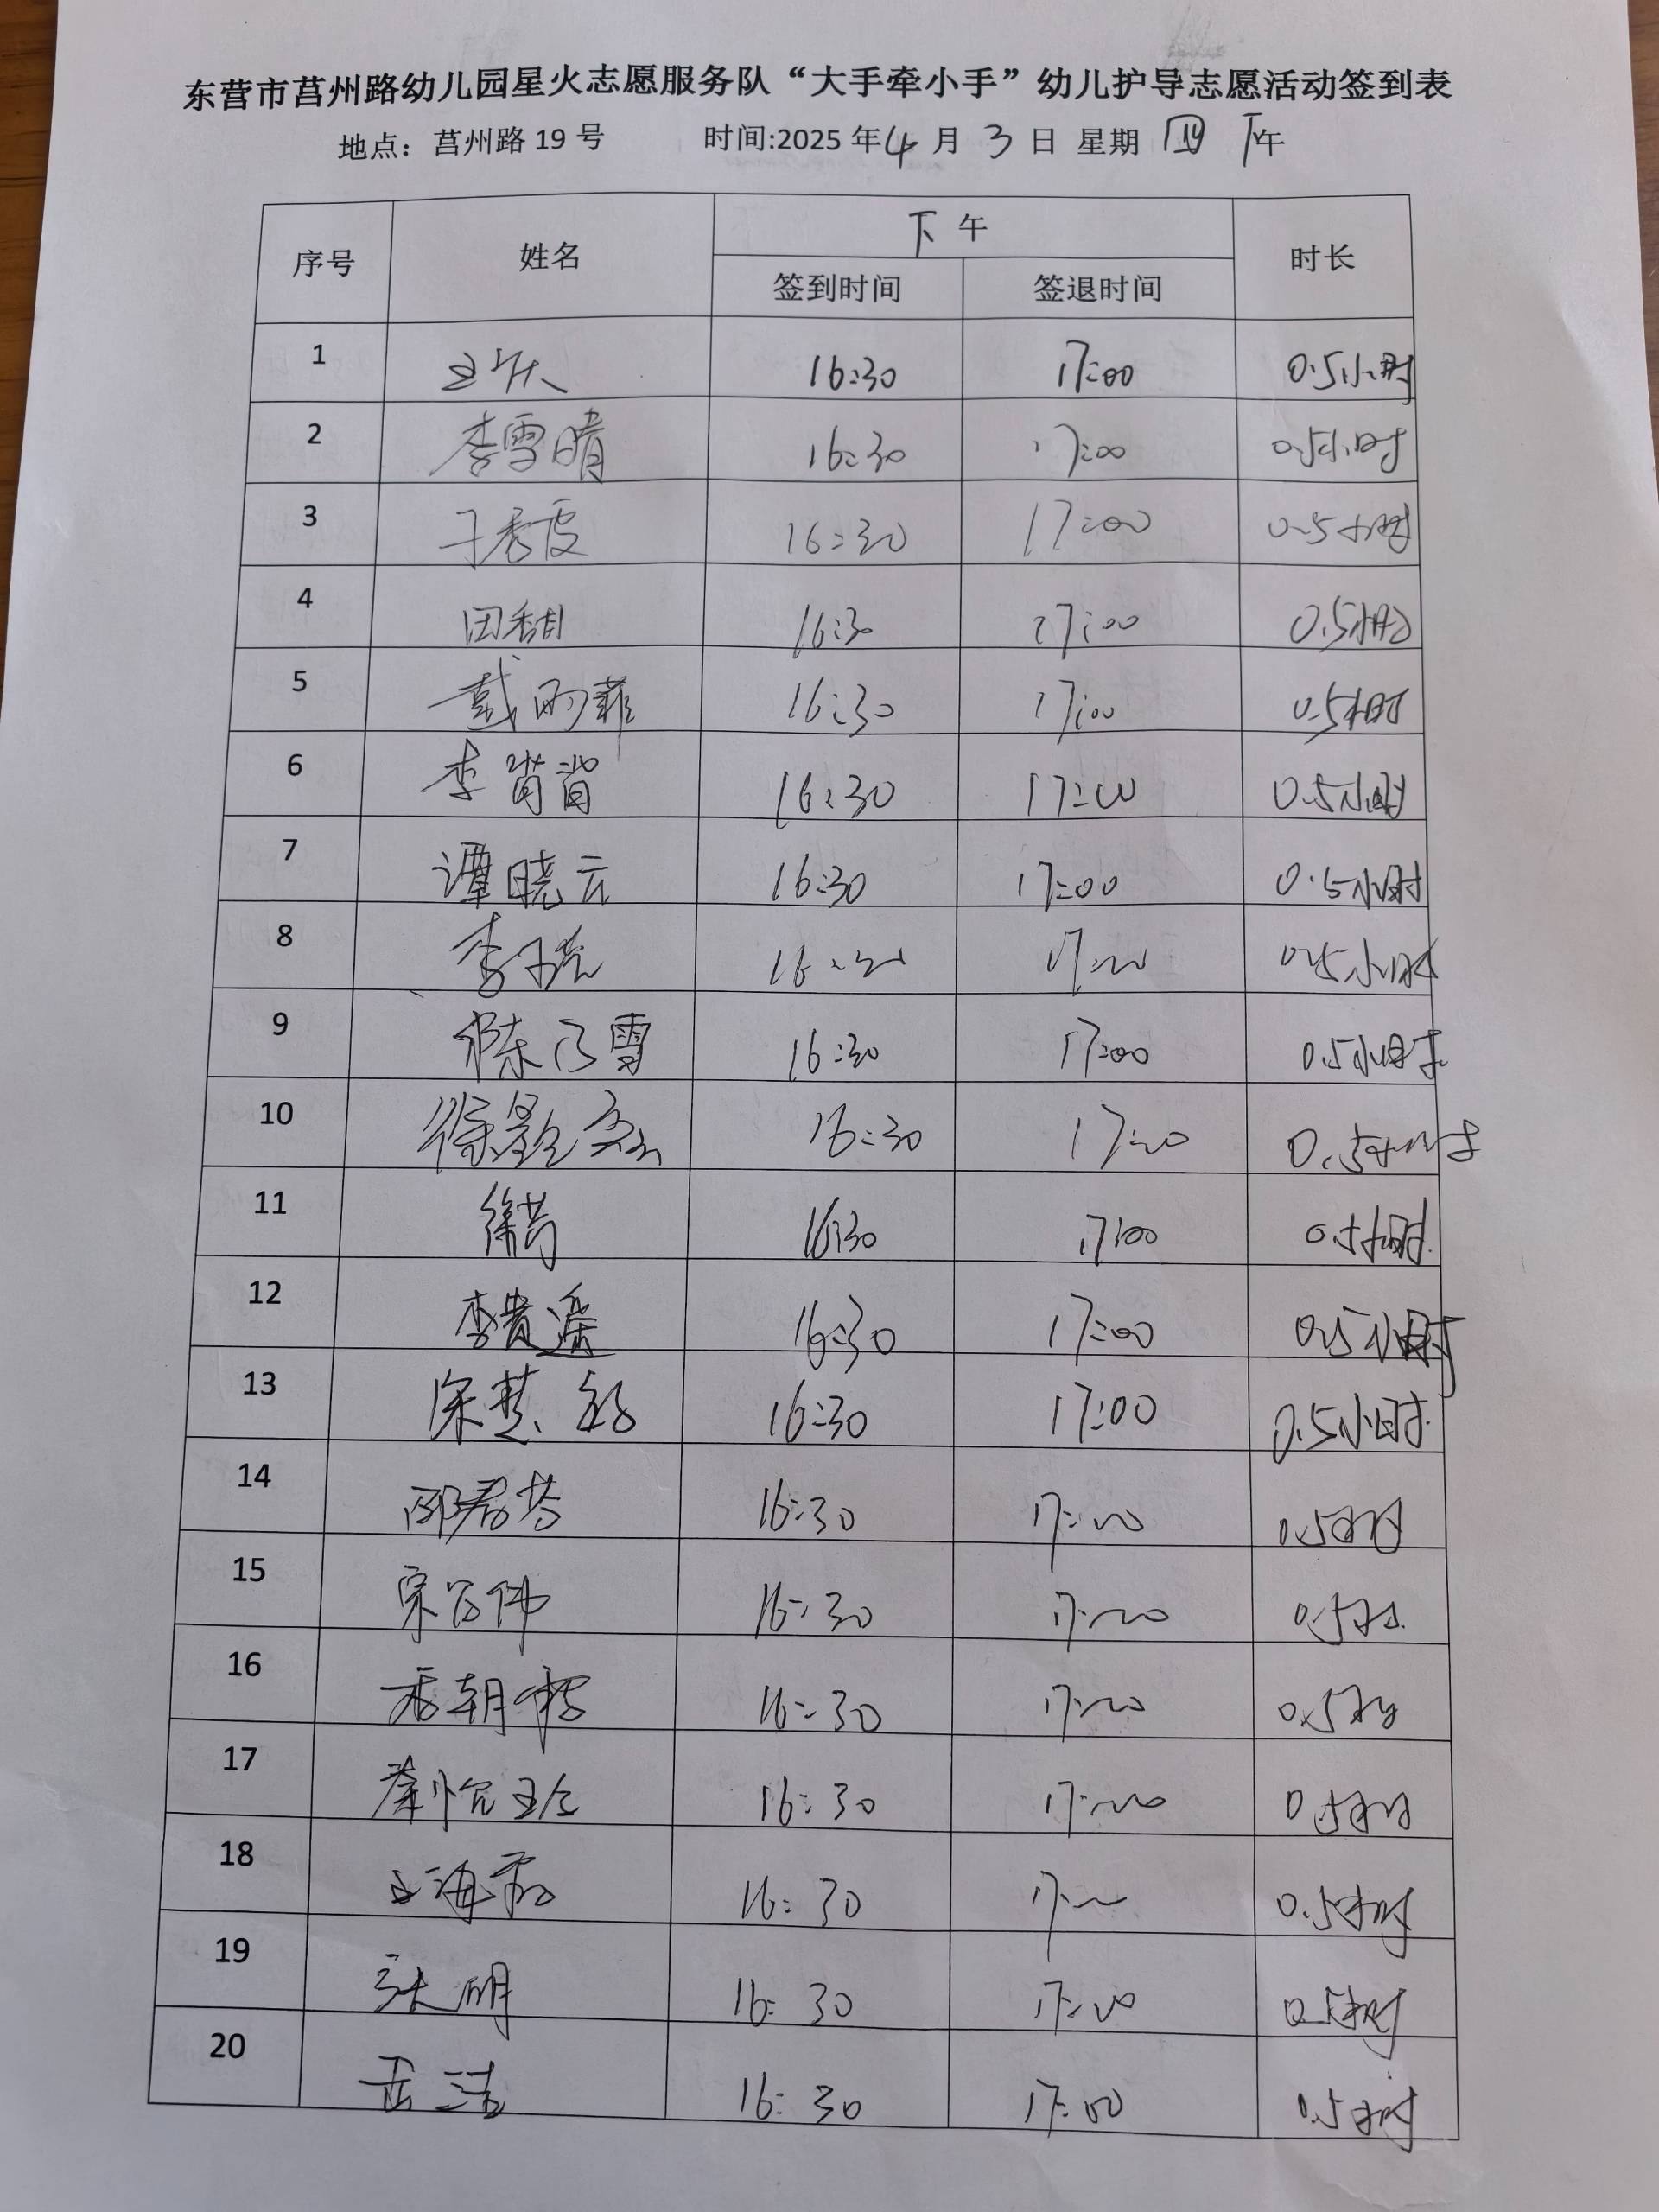 东营市莒州路幼儿园星火志愿服务队“大手牵小手”幼儿护导志愿活动签到表
地点：莒州路 19 号 时间:2025 年 4 月 3 日 星期 四 下午
序号 姓名 下 午 时长
签到时间 签退时间
1 16:30 17:00 0.5小时
2 李雪晴 16:30 17:00 0.5小时
3 于秀霞 16:30 17:00 0.5小时
4 田甜 16:30 17:00 0.5小时
5 戴雨菲 16:30 17:00 0.5小时
6 李 16:30 17:00 0.5小时
7 谭晓云 16:30 17:00 0.5小时
8 李 16:30 17:00 0.5小时
9 陈乃雪 16:30 17:00 0.5小时
10 徐 16:30 17:00 0.5小时
11 徐芳 16:30 17:00 0.5小时
12 李贵遥 16:30 17:00 0.5小时
13 16:30 17:00 0.5小时
14 邵君芳 16:30 17:00 0.5小时
15 16:30 17:00 0.5小时
16 16:30 17:00 0.5小时
17 16:30 17:00 0.5小时
18 16:30 17:00 0.5小时
19 张明 16:30 17:00 0.5小时
20 岳洁 16:30 17:00 0.5小时